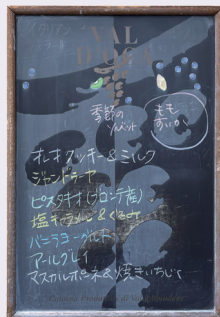 VAL
D'OCA
季節の
ソルベット
もも
すいか
オレオクッキー&ミルク
ジャンドゥーヤ
ピスタチオ(ブロンテ産)
塩キャラメル&くるみ
バニラヨーグルト
アールグレイ
マスカルポーネ&焼きいちじく